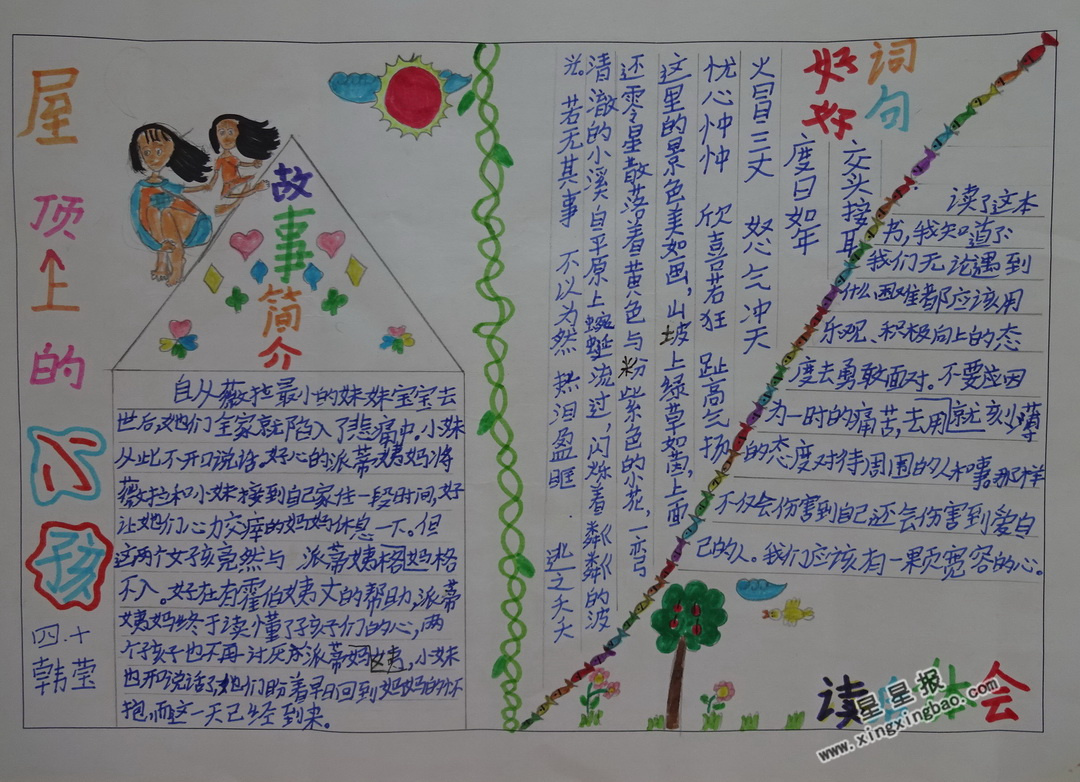 屋顶上的小孩
四.十
韩莹
故事简介
自从薇拉最小的妹妹宝宝去
世后,她们全家就陷入了悲痛中。小妹
从此不开口说话。好心的派蒂姨妈将
薇拉和小妹接到自己家住一段时间,好
让她们心力交瘁的妈妈休息一下。但
这两个女孩竟然与派蒂姨格妈格
不入。好在有霍伯姨丈的帮助,派蒂
姨妈终于读懂了孩子们的心,两
个孩子也不再讨厌派蒂妈姨,小妹
也开口说话了,她们盼着早日回到妈妈的怀
抱,而这一天已经到来。
好词
好句
交头接耳
度日如年
火冒三丈 怒气冲天
忧心忡忡 欣喜若狂 趾高气扬
这里的景色美如画,山坡上绿草如茵,上面
还零星散落着黄色与粉紫色的小花,一弯
清澈的小溪自平原上蜿蜒流过,闪烁着粼粼的波
光。若无其事 不以为然 热泪盈眶 . 逃之夭夭
读了这本
书,我知道了
我们无论遇到
什么困难都应该用
乐观、积极向上的态
度去勇敢面对。不要应因
为一时的痛苦,去用就该小尊
的态度对待周围的人和事那样
不仅会伤害到自己还会伤害到爱自
己的人。我们应该有一颗宽容的心。
读后体会
星星报
www.xingxingbao.com